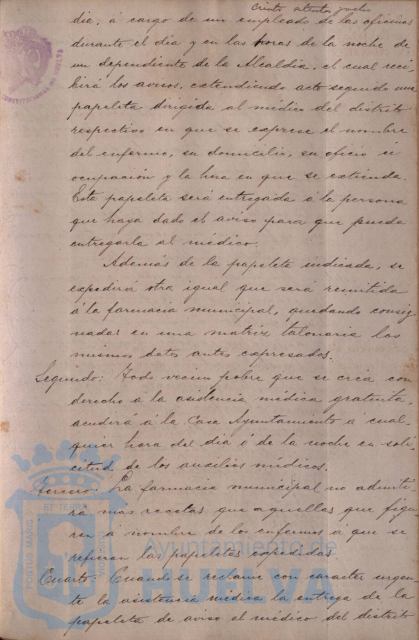 Ciento ochenta y ocho
dia, á cargo de un empleado de las oficinas
durante el dia y en las horas de la noche de
un dependiente de la Alcaldia, el cual reci-
birá los avisos, extendiendo acto seguido una
papeleta dirigida al médico del distrito
respectivo en que se exprese el nombre
del enfermo, su domicilio, su oficio ú
ocupación y la hora en que se extienda.
Esta papeleta será entregada á la persona
que haya dado el aviso para que pueda
entregarla al médico.
Además de la papeleta indicada, se
expedirá otra igual que será remitida
á la farmacia municipal, quedando consig-
nadas en una matriz talonaria los
mismos datos antes expresados.
Segundo: Todo vecino pobre que se crea con
derecho á la asistencia médica gratuita,
acudirá á la Casa Ayuntamiento a cual-
quier hora del dia ó de la noche en soli-
citud de los auxilios médicos.
Tercero: La farmacia municipal no admiti-
rá mas recetas que aquellas que figu-
ren a nombre de los enfermos á que se
refieran las papeletas expedidas.
Cuarto: Cuando se reclame con caracter urgen-
te la asistencia médica la entrega de la
papeleta de aviso el médico del distri-
Ayuntamiento de
HUELVA